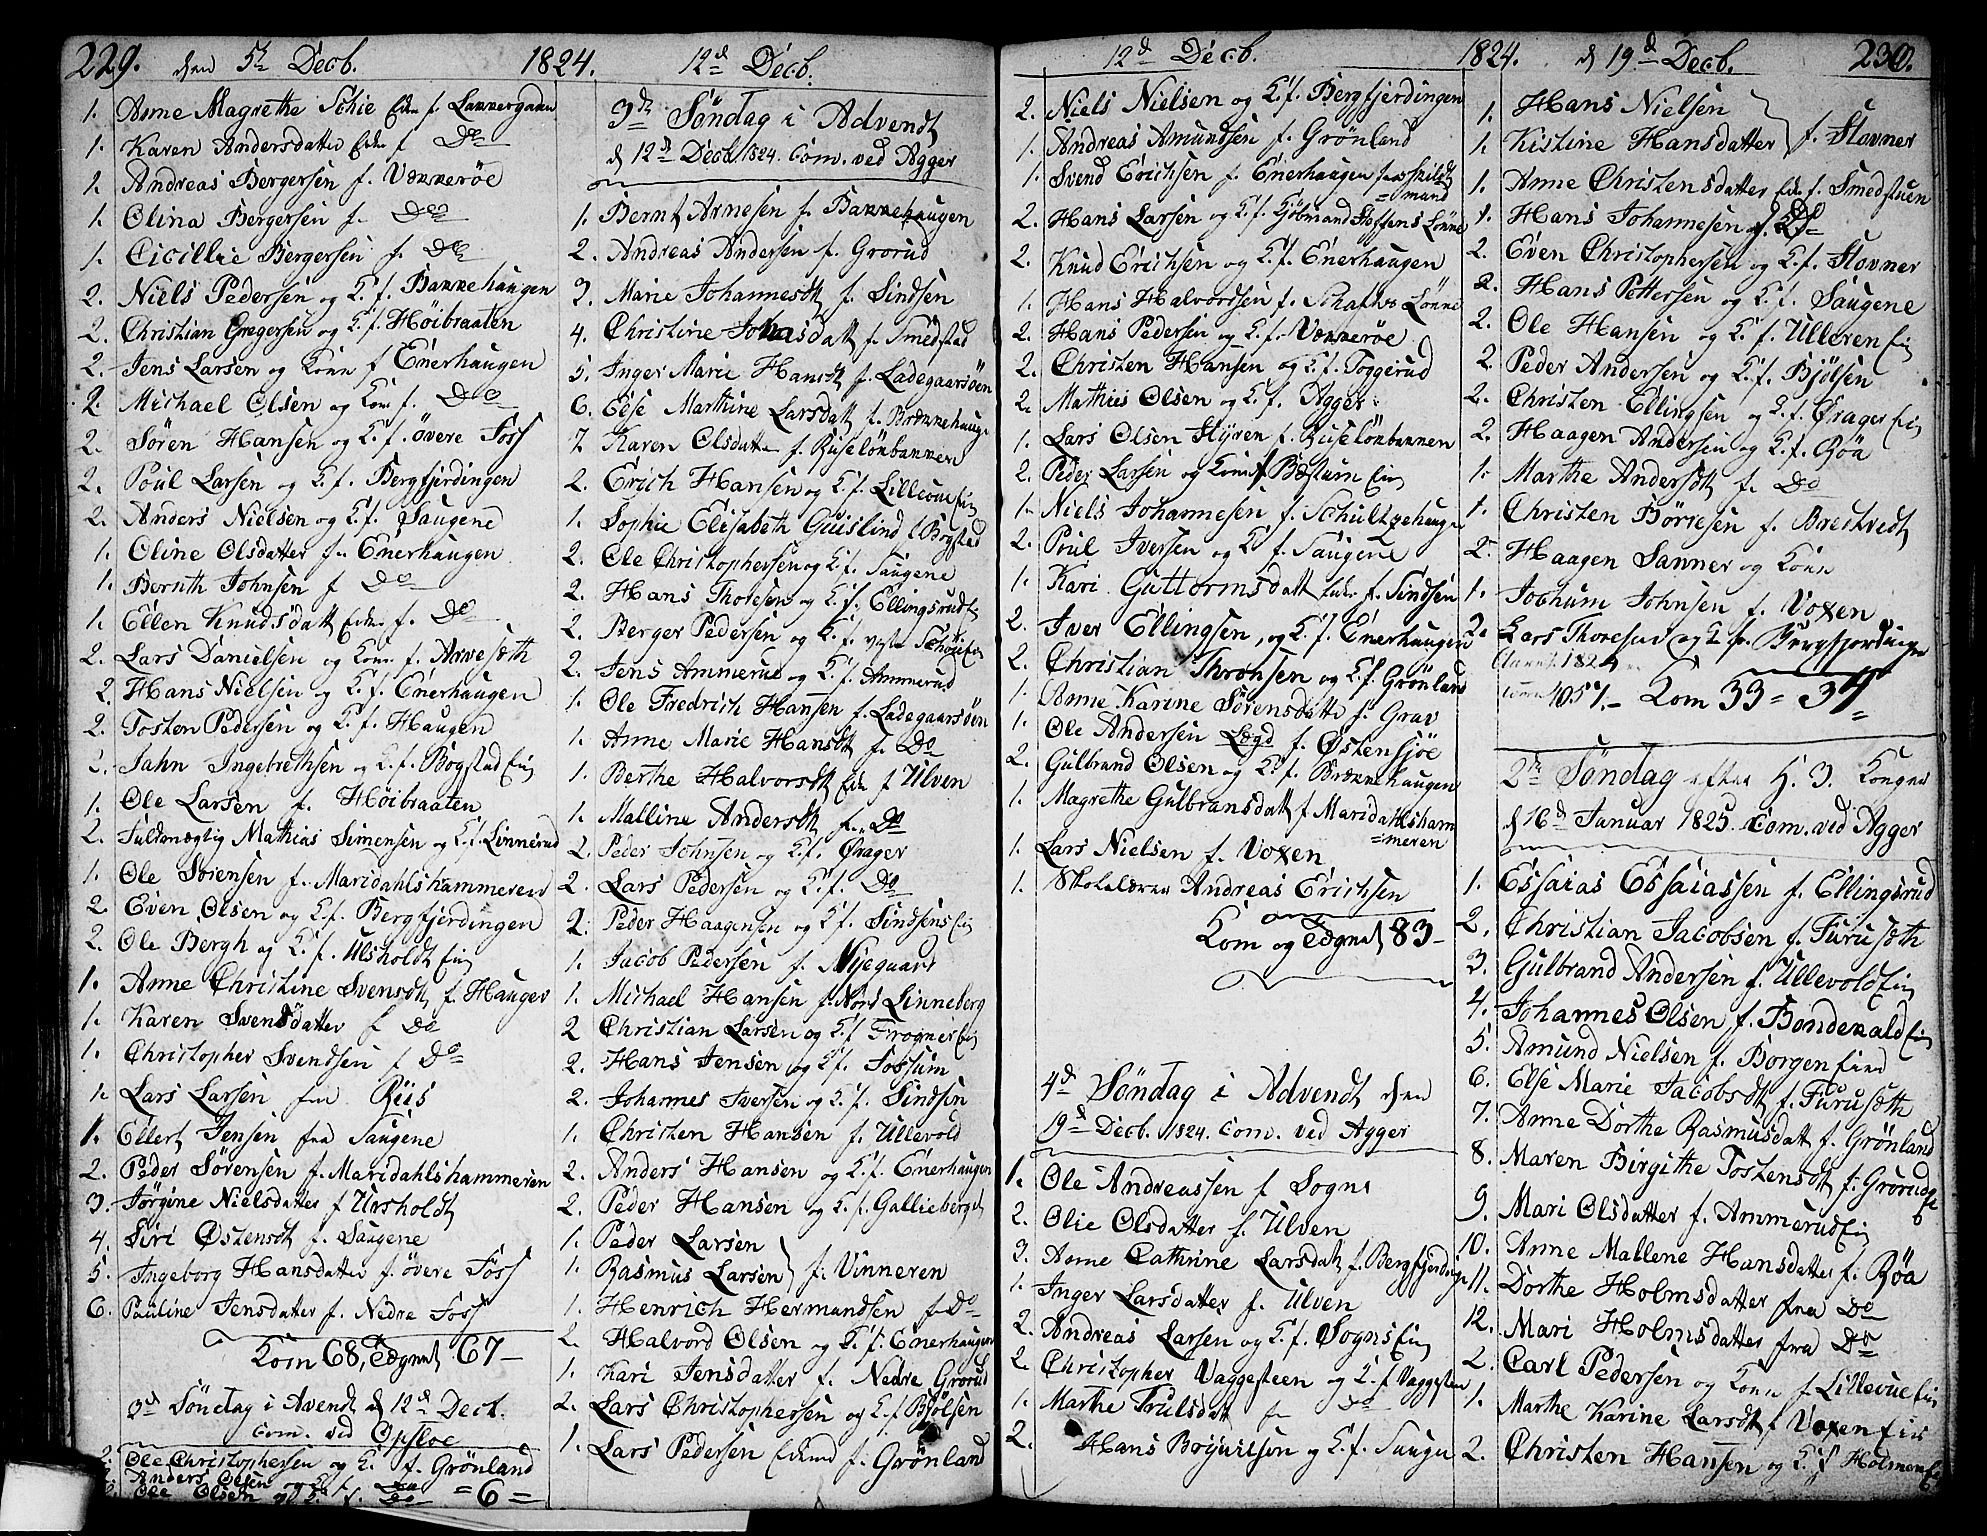 229. den 5te Decb. 1824. 12d Decb.
1. Anne Magrethe Schie Enke f. Lakkergaden
1. Karen Andersdatter Enke f Do
1. Andreas Bergersen f. Vækkeröe
1. Olina Bergersen f. Do
1. Cicillie Bergersen f. Do
2. Niels Pedersen og K. f. Bakkehaugen
2. Christian Gregersen og K. f. Höibraaten
2. Jens Larsen og Kone f Enerhaugen
2. Michael Olsen og Kone f. Do
2. Sören Hansen og K. f. övere Foss
2. Poul Larsen og K. f. Bergfjerdingen
2. Anders Nielsen og K. f. Saugene
1. Oline Olsdatter f. Enerhaugen
1. Bernth Johnsen f Do
1. Ellen Knudsdatt Enke f. Do
2. Lars Danielsen og Kone f. Arvesæth
2. Hans Nielsen og K. f. Enerhaugen
2. Tosten Pedersen og K. f. Haugen
2. Jahn Ingebrethsen og K. f. Bogstad Eie
1. Ole Larsen f. Höibraaten
2. Fuldmægtig Mathias Simensen og K. f. Linnerud
1. Ole Sörensen f. Maridahlshammeren
2. Even Olsen og K. f. Bergfjerdingen
2. Ole Bergh og K. f. Ulsholdt Eie
1. Anne Christine Svensdt f. Hauger
1. Karen Svendsdatter f Do
1. Christopher Svendsen f Do
1. Lars Larsen fra Riis
1. Ellert Jensen fra Saugene
2. Peder Sörensen f. Maridahlshammeren
3. Jörgine Nielsdatter f Ulsholdt
4. Siri Østensdt f. Saugene
5. Ingeborg Hansdatter f. övere Foss
6. Pauline Jensdatter f. Nedre Foss
Kom 68, Tegnet 67
3d Söndag i Avendt d 12d Decb.
Com. ved Opsloe
2. Ole Christophersen og K. f. Grönland
2. Anders Olsen og K f. Do
2. Ole Olsen og K. f. Do = 6 =
3de Söndag i Advendt
d 12d Decb 1824. Com. ved Agger
1. Bernt Arnesen f. Bakkehaugen
2. Andreas Andersen f. Grorud
3. Marie Johannesdt f. Sindsen
4. Christine Johasdatt f. Smedstad
5. Inger Marie Hansdt f. Ladegaarsöen
6. Else Marthine Larsdatt f. Brænnehauge
7 Karen Olsdatter f. Ruselönbakken
2. Erich Hansen og K. f. Lillevue Eie
1. Sophie Elisabeth Guislind f Bogstad
2. Ole Christophersen og K. f. Saugene
2. Hans Thoresen og K. f. Ellingsrudt
2. Berger Pedersen og K. f. vestre Schöie Eie
2. Jens Ammerud og K. f. Ammerud
1. Ole Fredrich Hansen f. Ladegaarsöen
1. Anne Marie Hansdt f. Do
1. Berthe Halvorsdt Enke f Ulven
1. Malline Andersdt f. Do
2. Peder Johnsen og K. f. Ørager
2. Lars Pedersen og K. f. Do
2. Peder Haagensen og K. f. Sindsens Eie
1. Jacob Pedersen f. Nyegaard
1. Michael Hansen f. Nord Linneberg
2 Christian Larsen og K f Frogner Eie
2. Hans Jensen og K. f. Fossum
2. Johannes Iversen og K. f. Sindsen
1. Christen Hansen f. Ullevold
2. Anders Hansen og K. f. Enerhaugen
2. Peder Hansen og K. f. Gallieberget
1. Peder Larsen
1. Rasmus Larsen } f. Vinneren
1. Henrich Hermandsen f Do
2. Halvord Olsen og K. f. Enerhaugen
1. Kari Jensdatter f. Nedre Grorud
2. Lars Christophersen og K. f Bjölsen
1. Lars Pedersen f. Grönland
12d Decb. 1824. d 19d Decb. 230.
2. Niels Nielsen og K. f. Bergfjerdingen
1. Andreas Amundsen f. Grönland
1. Svend Erichsen f. Enerhaugen fraskildt
=mand
2. Hans Larsen og K. f. Kjöbmand Steffens Lökke
2. Knud Erichsen og K. f. Enerhaugen
1. Hans Halvordsen f. Lökke
2. Hans Pedersen og K. f. Vækkeröe
2. Christen Hansen og K. f. Toggerud
2. Mathies Olsen og K. f. Agger
1. Lars Olsen Styren f. Ruselönbakken
2. Peder Larsen og Kone f Bæstum Eie
1. Niels Johannesen f. Schultzehaugen
2. Poul Iversen og K f. Saugene
1. Kari Guttormsdatt Enke f. Sindsen
2. Iver Ellingsen, og K. f. Enerhaugen
2. Christian Thronsen og K. f. Grönland
1. Anne Karine Sörensdatter f. Grav
1. Ole Andersen Lægd f. Østensjöe
2. Gulbrand Olsen og K. f. Brænnehaugen
1. Magrethe Gulbransdatt f. Maridahlsham
=meren
1. Lars Nielsen f. Voxen
1. Skolelærer Andreas Erichsen
Kom og Tegnet 83
4d Söndag i Advendt den
19d Decb. 1824. Com. ved Agger
1. Ole Andreassen f Sogn
2. Olie Olsdatter f. Ulven
3. Anne Cathrine Larsdatt f. Bergfjerdinge
1. Inger Larsdatter f. Ulven
2. Andreas Larsen og K. f. Sogns Eie
2. Christopher Vaggesteen og K. f Vaggesten
1. Marthe Trulsdatt f Do
2. Hans og K. f. Sauge
1. Hans Nielsen
1. Kistine Hansdatter } f. Stovner
1. Anne Christensdatter Enke f. Smedstuen
1. Hans Johannesen f. Do
2. Even Christophersen og K. f. Stovner
2. Hans Pettersen og K. f. Saugene
2. Ole Hansen og K. f. Ulleren Eie
2. Peder Andersen og K. f. Bjölsen
2. Christen Ellingsen og K. f. Ørager Eie
2. Haagen Andersen og K. f. Röa
1. Marthe Andersdt f. Do
1. Christen Börresen f. Bredtvedt
2. Haagen Sanner og Kone
1. Jochum Johnsen f. Voxen
2. Lars Thoresen og K f. Bergfjerdingen
1824
4057. Kom 33 = 37
2de Söndag efter H. 3. Konger
d 16d Januar 1825. Com. ved Agger
1. Essaias Essaiassen f. Ellingsrud
2. Christian Jacobsen f. Furusæth
3. Gulbrand Andersen f. Ullevold Eie
4. Johannes Olsen f. Bondekald Eie
5. Amund Nielsen f. Borgen Eie
6. Else Marie Jacobsdt f. Furusæth
7. Anne Dorthe Rasmusdatt f. Grönland
8. Maren Birgithe Tostensdt f. Grorud Eie
9. Mari Olsdatter f. Ammerud Eie
10. Anne Mallene Hansdatter f. Röa
11. Dorthe Holmsdatter fra Do
12. Mari Holmsdatter fra Do
2. Carl Pedersen og Kone f. Lillevue Eie
1. Marthe Karine Larsdt f Voxen Eie
2. Christen Hansen og K. f Holmen Eie